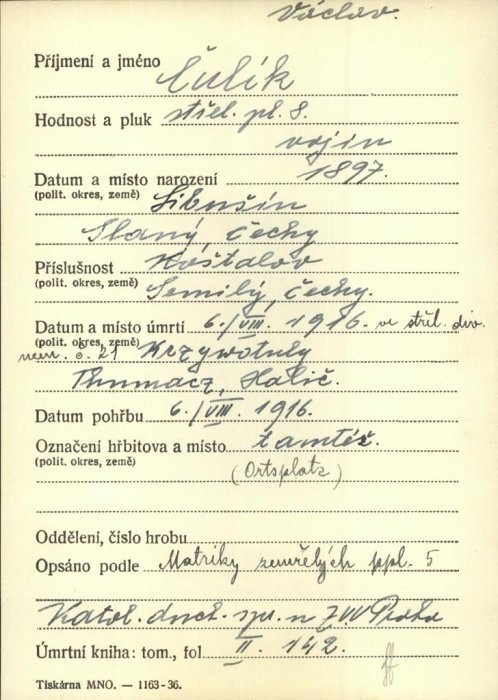 Václav.
Příjmení a jméno Čulík
Hodnost a pluk střel. pl. 8.
vojín
Datum a místo narození 1897.
(polit. okres, země) Libušín
Slaný, Čechy
Příslušnost Košťalov
(polit. okres, země) Semily, Čechy.
Datum a místo úmrtí 6./VIII. 1916. ve střel. div.
(polit. okres, země)
nem. č. 21 Krzywotuly
Tłumacz, Halič.
Datum pohřbu 6./VIII. 1916.
Označení hřbitova a místo tamtéž.
(polit. okres, země) (Ortsplatz)
Oddělení, číslo hrobu
Opsáno podle Matriky zemřelých ppl. 5
Katol. duch. spr. u ZVV Praha
Úmrtní kniha: tom., fol. II. 142.
Tiskárna MNO. — 1163-36.